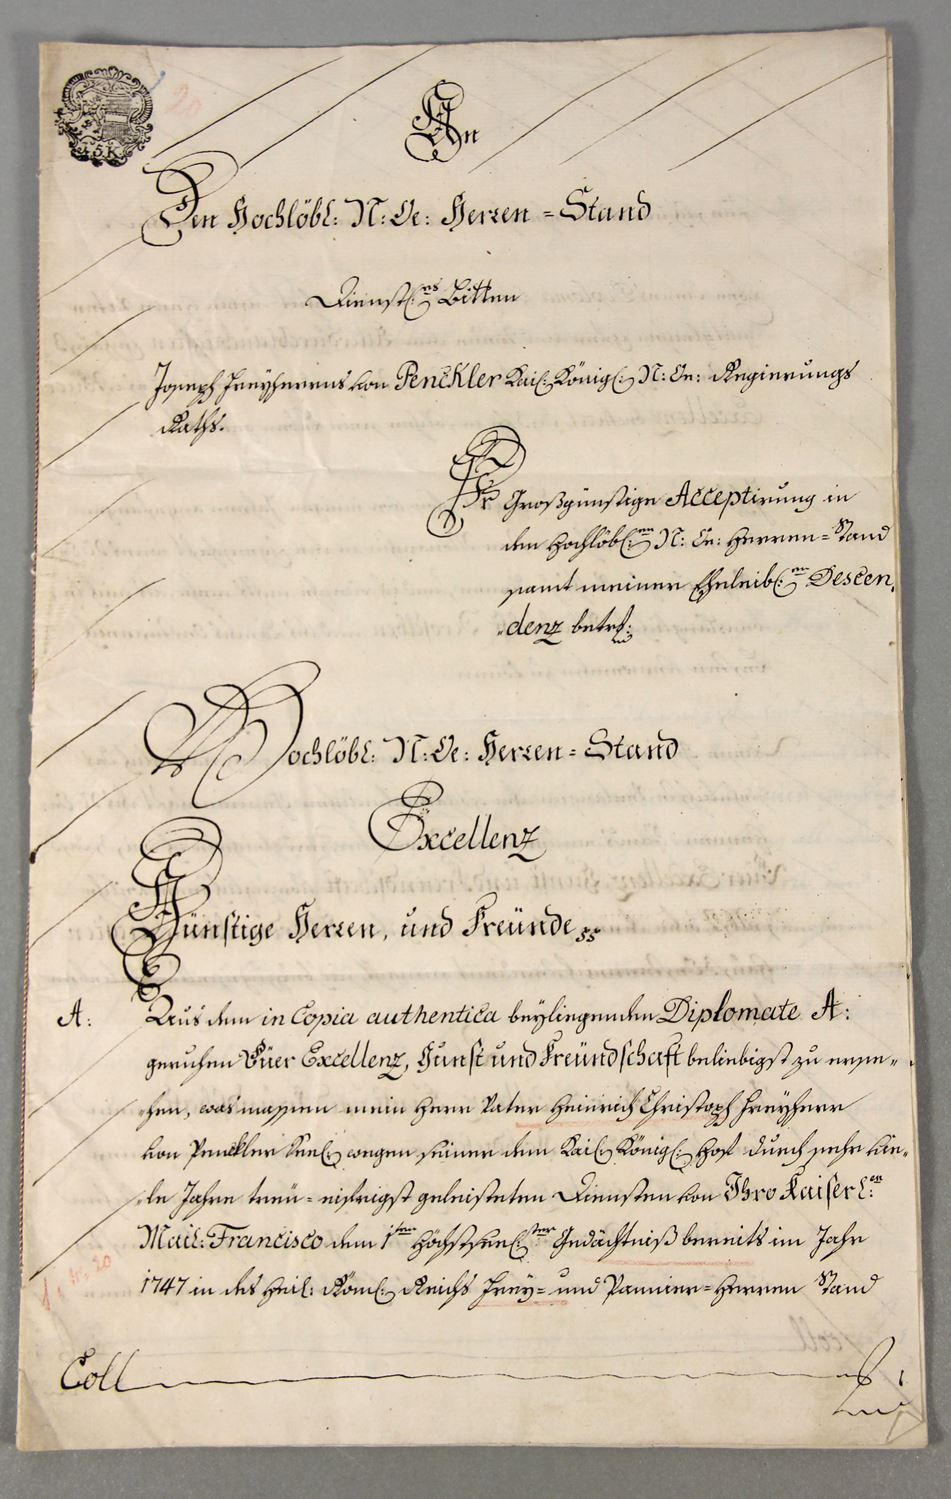 15 K
20
An
Den Hochlöbl: N: Oe: Herren=Stand
Dienstl:es Bitten
Joseph Freyherrns von Penckler Kail: Königl: N: Oe: Regierungs
Raths.
Pr Großgünstige Acceptirung in
den Hochlöbl:en N: Oe: Herren=Stand
samt meiner Eheleibl:en Descen„
„denz betrf:
Hochlöbl: N: Oe: Herren=Stand
Excellenz
Günstige Herren, und Freünde
A: Aus dem in Copia authentica beyliegenden Diplomate A:
geruhen Eüer Excellenz, Gunst und Freündschaft beliebigst zu erse„
„hen, was massen mein Herr Vater Heinrich Christoph Freyherr
von Penckler seel: wegen seiner dem Kail: Königl: Hof durch sehr vie„
„le Jahre treü=eifrigst geleisteten Diensten von Ihro Kaiserl:en
Maÿl: Francisco dem 1ten Höchstseel:ster Gedächtniß bereits im Jahr
1747 in des Heil: Röml: Reichs Frey= und Pannier=Herren Stand
Coll